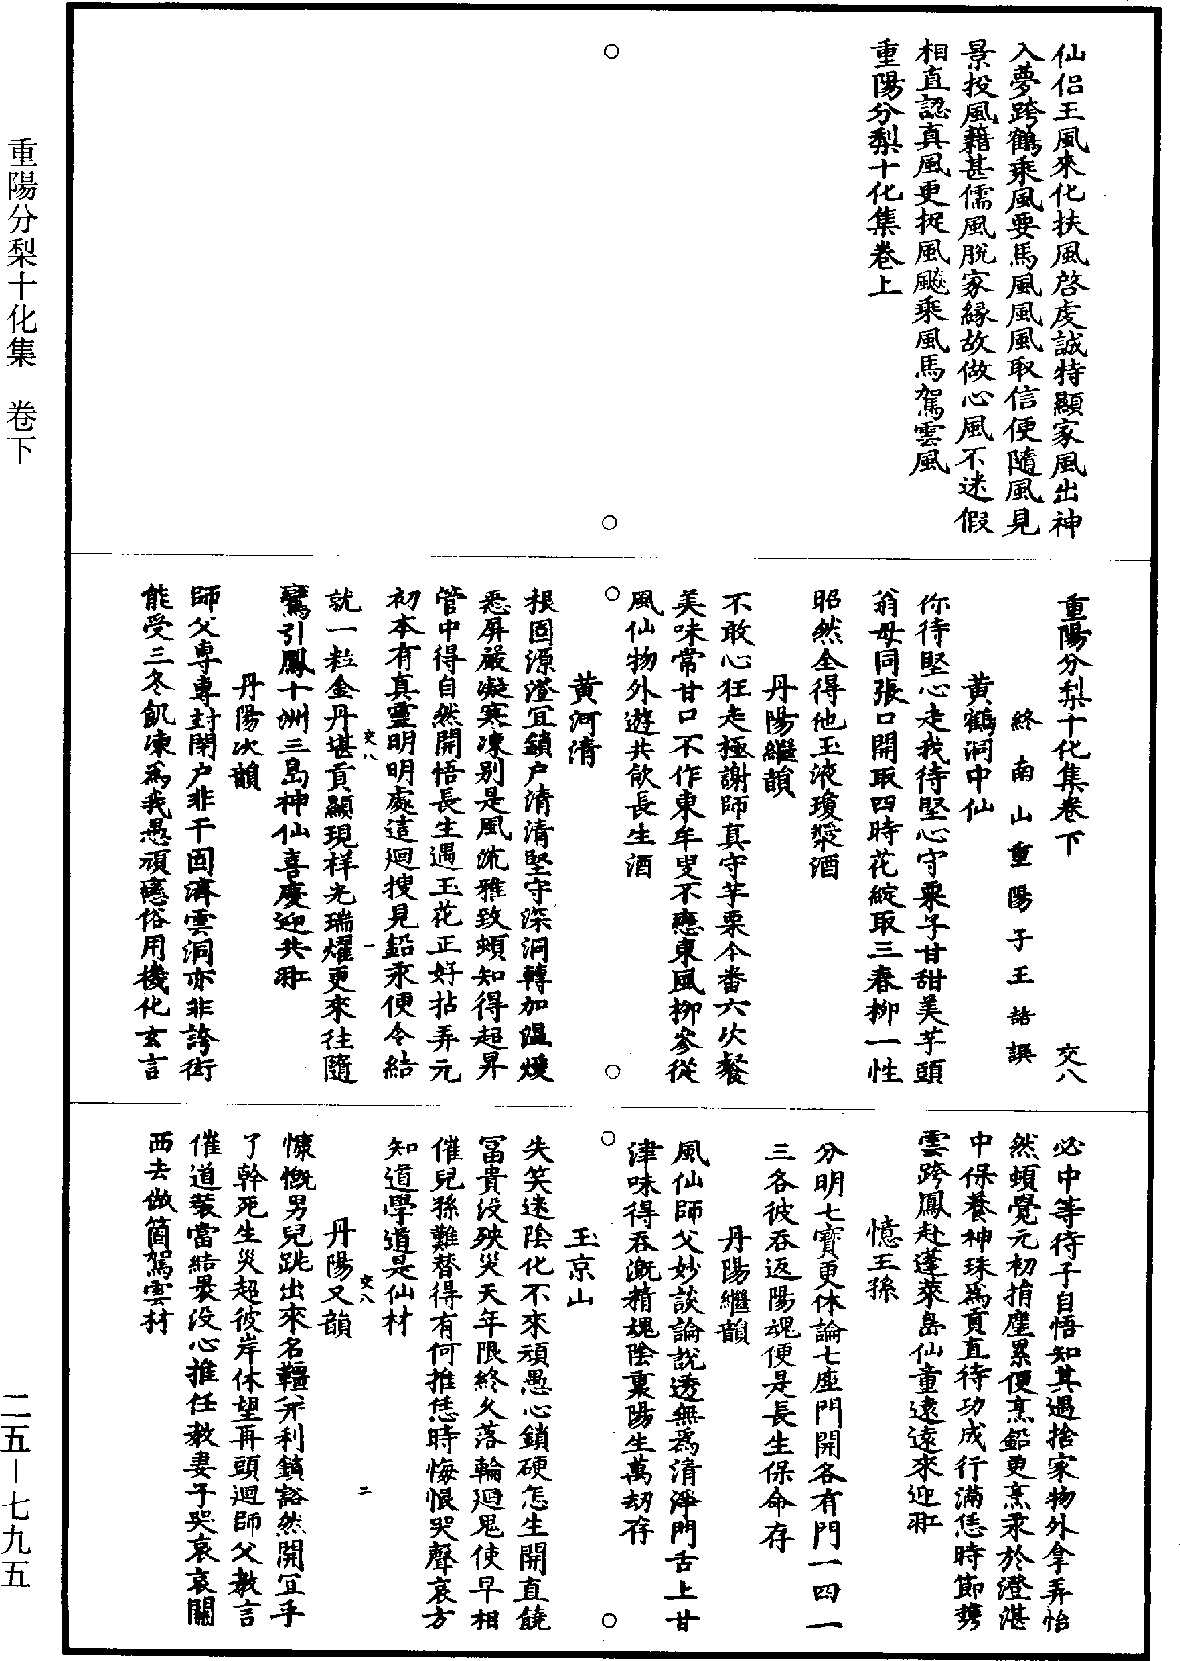 重陽分梨十化集　卷下
二五－七九五
仙侣王風來化扶風啓虔誠特顯家風出神
入夢跨鶴乘風要馬風風風取信便隨風見
景投風藉甚儒風脫家緣故做心風不迷假
相直認真風更捉風飈乘風馬駕雲風
重陽分梨十化集卷上
重陽分梨十化集卷下　交八
終南山重陽子王嚞譔
黄鶴洞中仙
你待堅心走我待堅心守栗子甘甜美芋頭
翁母同張口開取四時花綻取三春柳一性
昭然全得他玉液瓊漿酒
丹陽繼韻
不敢心狂走極謝師真守芋栗今番六次餐
美味常甘口不作東牟叟不戀東風柳參從
風仙物外遊共飲長生酒
黄河清
根固源澄宜鎖户清清堅守深洞轉加温煖
悉屏嚴凝寒凍别是風流雅致頓知得超昇
管中得自然開悟長生遇玉花正好拈弄元
初本有真靈明明處這迴搜見鉛汞便令結
交八　一
就一粒金丹堪貢顯現祥光瑞耀更來往隨
鸞引鳳十洲三島神仙喜慶迎共𦐂
丹陽次韻
師父專專封閉户非干固濟雲洞亦非誇街
能受三冬飢凍為我愚頑戀俗用機化玄言
必中等待子自悟知其過捨家物外拿弄怡
然頓覺元初捐塵累便烹鉛更烹汞於澄湛
中保養神珠為貢直待功成行滿恁時節携
雲跨鳳赴蓬萊島仙童遠遠來迎𦐂
憶王孫
分明七寶更休論七座門開各有門一四一
三各彼吞返陽魂便是長生保命存
丹陽繼韻
風仙師父妙談論説透無為清淨門舌上甘
津味得吞溉精魂陰裏陽生萬劫存
玉京山
失笑迷陰化不來頑愚心鎖硬怎生開直饒
冨貴没殃災天年限終久落輪迴鬼使早相
催兒孫難替得有何推恁時悔恨哭聲哀方
知道學道是仙材
交八　二
丹陽又韻
慷慨男兒跳出來名韁并利鎖豁然開宜乎
了幹死生災超彼岸休望再頭迴師父教言
催道裝當結裹没心推任教妻子哭哀哀關
西去做箇駕雲材